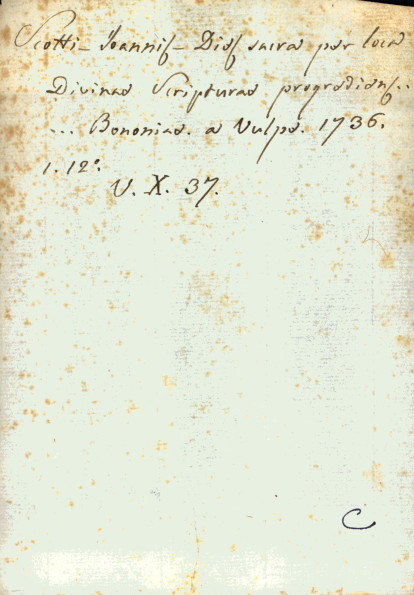 Scotti - Joannis - Dies sacra per loca
Divinae Scripturae progrediens..
... Bononiae. a Vulpe. 1736.
1. 12°.
V. X. 37.
C